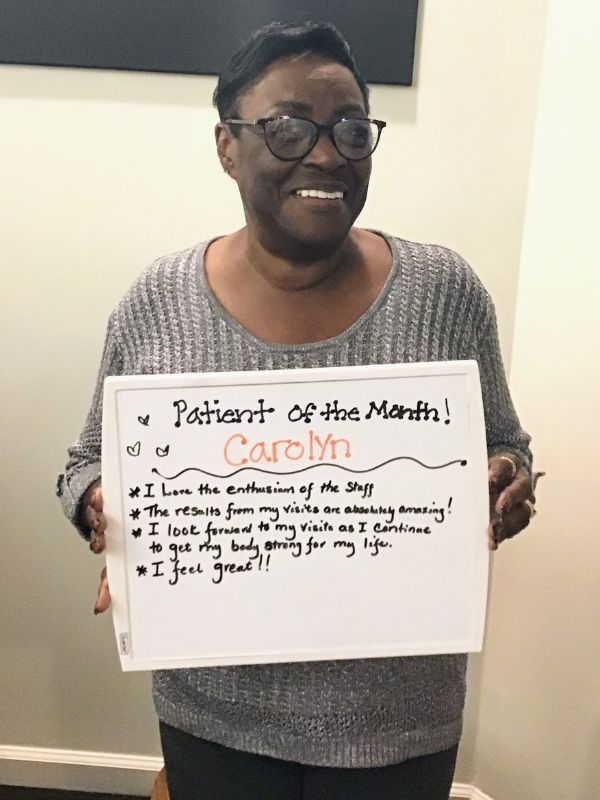 Patient of the Month!
Carolyn
* I Love the enthusiasm of the Staff
* The results from my visits are absolutely amazing!
* I look forward to my visits as I continue
to get my body strong for my life.
* I feel great!!